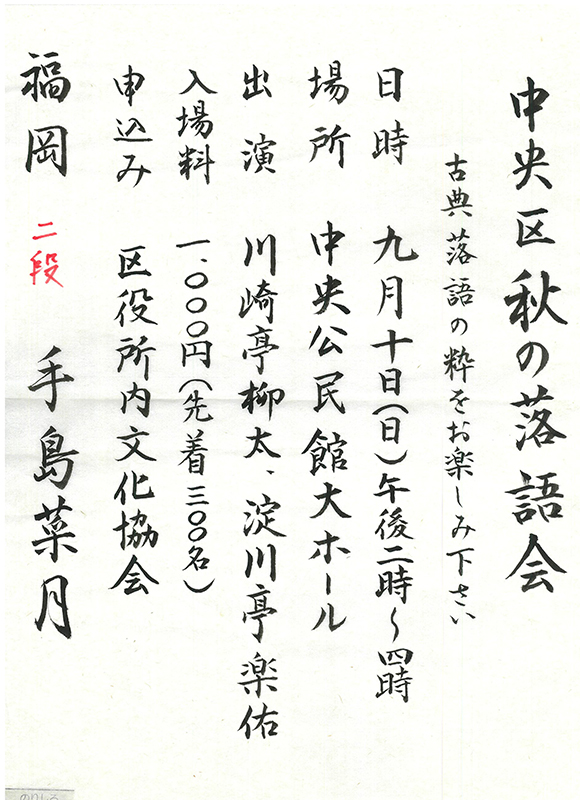 中央区秋の落語会
古典落語の粋をお楽しみ下さい
日時 九月十日(日)午後二時~四時
場所 中央公民館大ホール
出演 川崎亭柳太、淀川亭楽佑
入場料 一、〇〇〇円(先着三〇〇名)
申込み 区役所内文化協会
福岡 二段 手島菜月
のりしろ